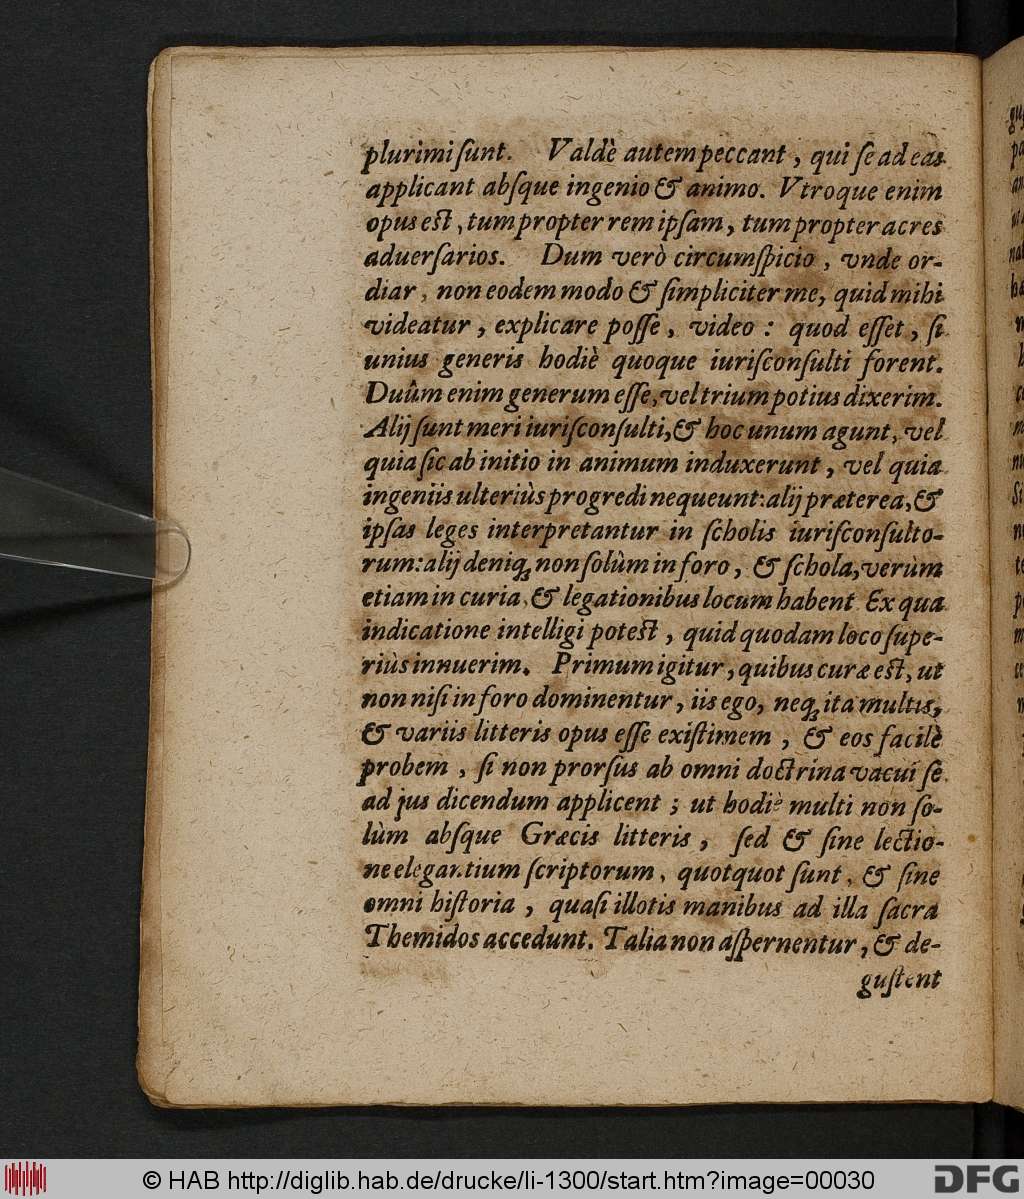 plurimi ſunt. Valdè autem peccant, qui ſe ad eas
applicant abſque ingenio & animo. Vtroque enim
opus est, tum propter rem ipſam, tum propter acres
aduerſarios. Dum verò circumſpicio, vnde or-
diar, non eodem modo & ſimpliciter me, quid mihi
videatur, explicare poſſe, video: quod eſſet, ſi
unius generis hodiè quoque iuriſconſulti forent.
Duûm enim generum eſſe, vel trium potius dixerim.
Alij ſunt meri iuriſconſulti, & hoc unum agunt, vel
quia ſic ab initio in animum induxerunt, vel quia
ingeniis ulteriùs progredi nequeunt: alij præterea, &
ipſas leges interpretantur in ſcholis iuriſconſulto-
rum: alij deniq; non ſolùm in foro, & ſchola, verùm
etiam in curia & legationibus locum habent Ex qua
indicatione intelligi potest, quid quodam loco ſupe-
riùs innuerim. Primum igitur, quibus curæ est, ut
non niſi in foro dominentur, iis ego, neq; ita multis,
& variis litteris opus eſſe exiſtimem, & eos facilè
probem, ſi non prorſus ab omni doctrina vacui ſe
ad jus dicendum applicent; ut hodiè multi non ſo-
lùm abſque Græcis litteris, ſed & ſine lectio-
ne elegantium ſcriptorum, quotquot ſunt, & ſine
omni hiſtoria, quaſi illotis manibus ad illa ſacra
Themidos accedunt. Talia non aſpernentur, & de-
guſtent
© HAB http://diglib.hab.de/drucke/li-1300/start.htm?image=00030
DFG